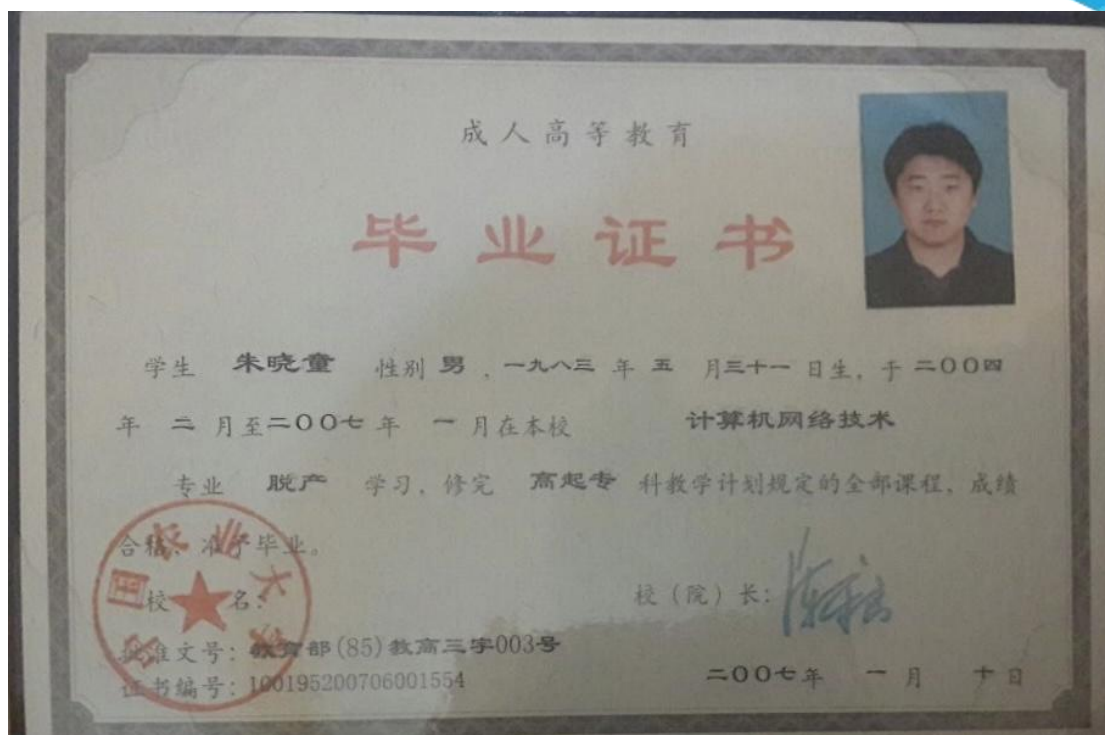 成人高等教育
毕业证书
学生 朱晓童 性别 男 ，一九八三 年 五 月三十一 日生，于 二00四
年 二 月至二00七 年 一 月在本校 计算机网络技术
专业 脱产 学习，修完 高起专 科教学计划规定的全部课程，成绩
合格，准予毕业。
校 名： 校（院）长：
批准文号：教育部(85)教高三字003号
证书编号：100195200706001554
二00七年 一 月 十 日
中国农业大学